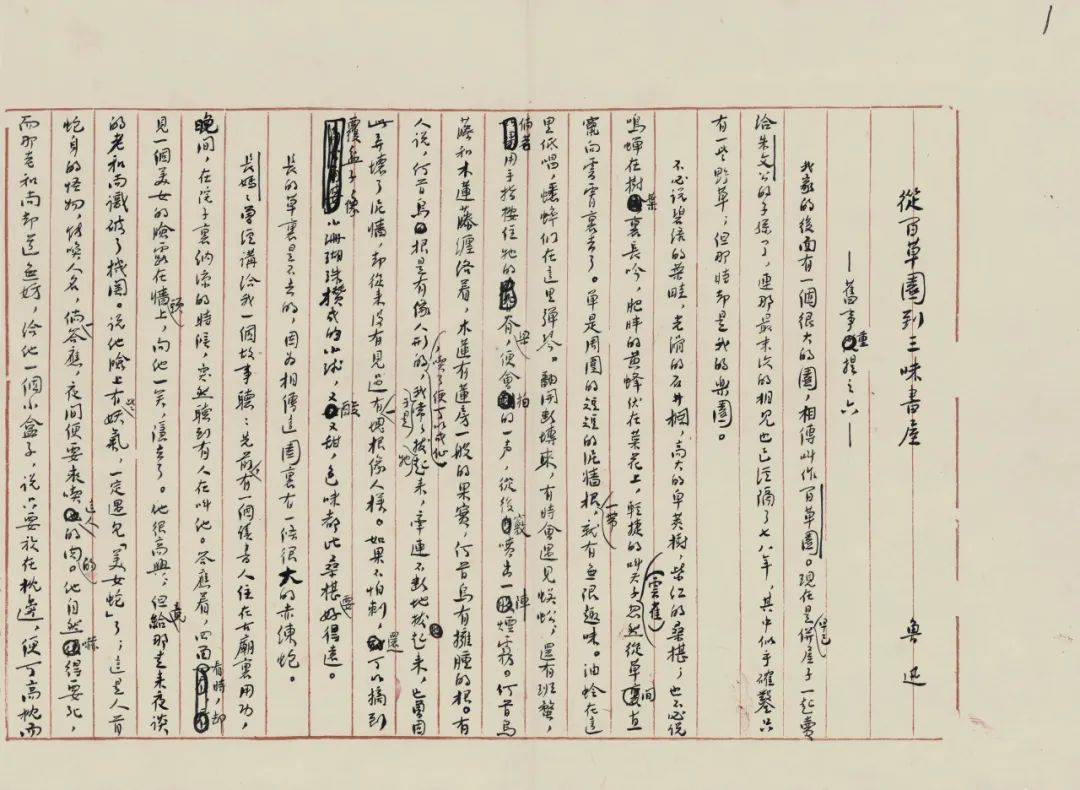 1
從百草園到三味書屋
——舊事重提之六——
魯迅
我家的後面有一個很大的園,相傳叫作百草園。現在是早已併屋子一起賣
給朱文公的子孫了,連那最末次的相見也已經隔了七八年,其中似乎確鑿只
有一些野草;但那時却是我的樂園。
不必說碧綠的菜畦,光滑的石井欄,高大的皁莢樹,紫紅的桑椹;也不必說
鳴蟬在樹葉裏長吟,肥胖的黃蜂伏在菜花上,輕捷的叫天子(雲雀)忽然從草間直
竄向雲霄裏去了。單是周圍的短短的泥牆根一帶,就有無限趣味。油蛉在這
里低唱,蟋蟀們在這里彈琴。翻開斷塼來,有時會遇見蜈蚣;還有斑蝥,
倘若用手指按住牠的脊梁,便會拍的一声,從後竅噴出一陣煙霧。何首烏
藤和木蓮藤纏絡着,木蓮有蓮房一般的果實,何首烏有擁腫的根。有
人說,何首烏根是有像人形的,喫了便可以成仙,我於是常常拔牠起來,牽連不斷地拔起來,也曾因
此弄壞了泥牆,却從來沒有見過有一塊根像人樣。如果不怕刺,還可以摘到
覆盆子,像小珊瑚珠攢成的小球,又酸又甜,色味都比桑椹要好得遠。
長的草裏是不去的,因為相傳這園裏有一條很大的赤練蛇。
長媽媽曾經講給我一個故事聽:先前,有一個讀書人住在古廟裏用功,
晚間,在院子裏納涼的時候,突然聽到有人在叫他。答應着,四面看時,却
見一個美女的臉露在牆頭上,向他一笑,隱去了。他很高興;但竟給那走來夜談
的老和尚識破了機關。說他臉上有些妖氣,一定遇見「美女蛇」了;這是人首
蛇身的怪物,能喚人名,倘一答應,夜間便要來喫這人的肉的。他自然嚇得要死,
而那老和尚却道無妨,給他一個小盒子,說只要放在枕邊,便可高枕而